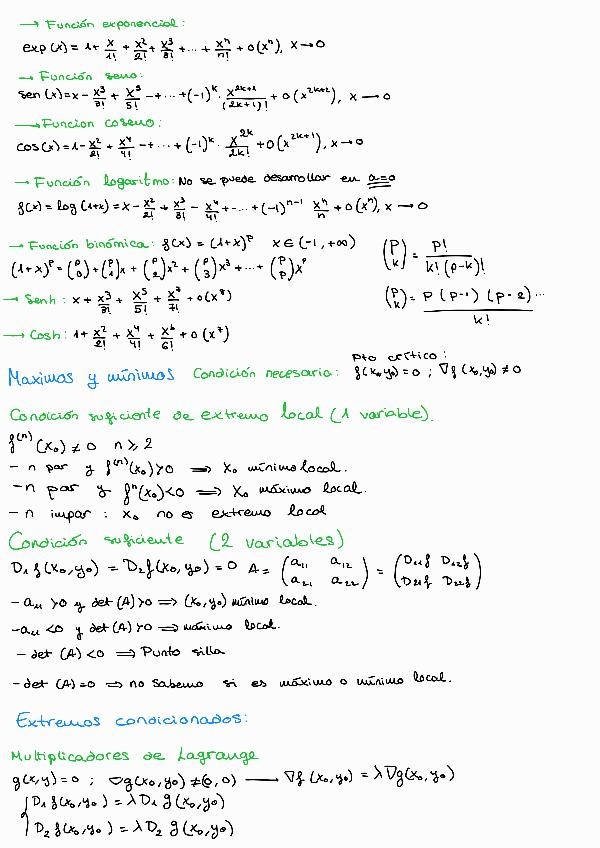 → Función exponencial:
exp(x) = 1 + x/1! + x²/2! + x³/3! + ... + xⁿ/n! + o(xⁿ), x → 0
→ Función seno:
sen(x) = x - x³/3! + x⁵/5! - + ... + (-1)^k · x^(2k+1)/(2k+1)! + o(x^(2k+2)), x → 0
→ Función coseno:
cos(x) = 1 - x²/2! + x⁴/4! - + ... + (-1)^k · x^(2k)/2k! + o(x^(2k+1)), x → 0
→ Función logaritmo: No se puede desarrollar en a=0
f(x) = log(1+x) = x - x²/2! + x³/3! - x⁴/4! + - ... + (-1)^(n-1) xⁿ/n + o(xⁿ), x → 0
→ Función binómica: f(x) = (1+x)^p x ∈ (-1, +∞) (p k) = p!/k!(p-k)!
(1+x)^p = (p 0) + (p 1)x + (p 2)x² + (p 3)x³ + ... + (p p)x^p
→ Senh: x + x³/3! + x⁵/5! + x⁷/7! + o(x⁸) (p k) = p(p-1)(p-2).../k!
→ Cosh: 1 + x²/2! + x⁴/4! + x⁶/6! + o(x⁷)
Pto crítico:
Maximos y mínimos Condición necesaria: f(x₀,y₀) = 0 ; ∇f(x₀,y₀) ≠ 0
Condición suficiente de extremo local (1 variable).
f^(n)(x₀) ≠ 0 n ≥ 2
- n par y f^(n)(x₀) > 0 ⇒ x₀ mínimo local.
- n par y fⁿ(x₀) < 0 ⇒ x₀ máximo local.
- n impar : x₀ no es extremo local
Condición suficiente (2 variables)
D₁f(x₀,y₀) = D₂f(x₀,y₀) = 0 A = (a₁₁ a₁₂ a₂₁ a₂₂) = (D₁₁f D₁₂f D₂₁f D₂₂f)
- a₁₁ > 0 y det(A) > 0 ⇒ (x₀,y₀) mínimo local.
- a₁₁ < 0 y det(A) > 0 ⇒ máximo local.
- det(A) < 0 ⇒ Punto silla
- det(A) = 0 ⇒ no sabemos si es máximo o mínimo local.
Extremos condicionados:
Multiplicadores de Lagrange
g(x,y) = 0 ; ∇g(x₀,y₀) ≠ (0,0) → ∇f(x₀,y₀) = λ∇g(x₀,y₀)
{ D₁f(x₀,y₀) = λD₁ g(x₀,y₀)
D₂f(x₀,y₀) = λD₂ g(x₀,y₀)